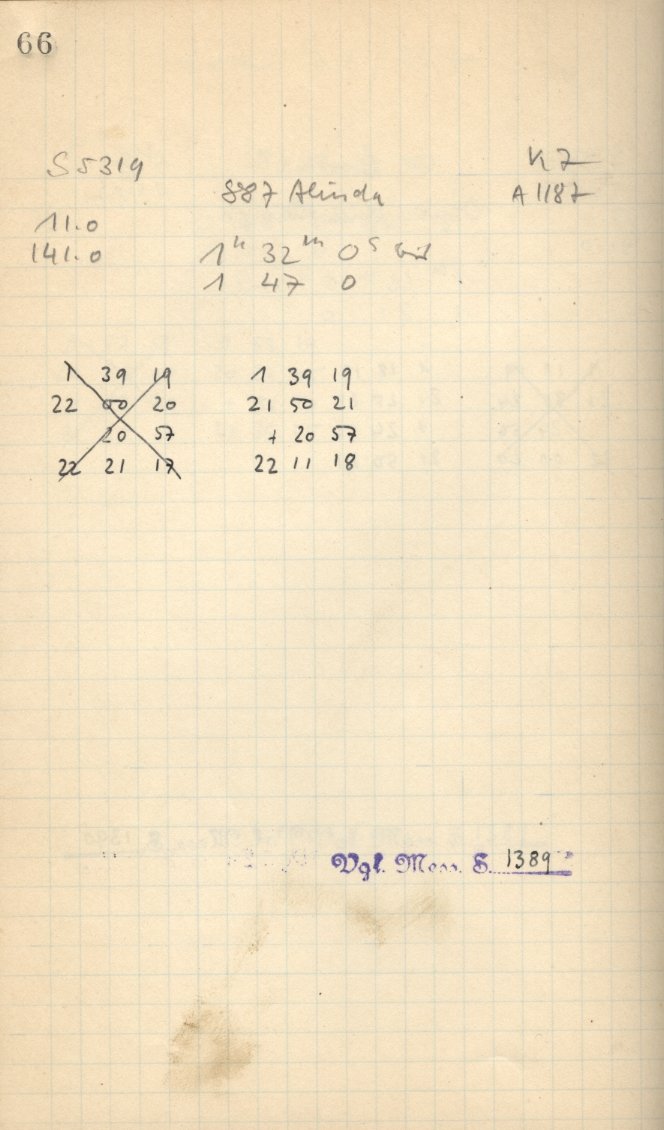 66
S 5319
K 7
887 Alinda
A 1187
11.0
141.0
1ʰ 32ᵐ 0ˢ bis
1 47 0
1 39 19
22 00 20
20 57
22 21 17
1 39 19
21 50 21
+ 20 57
22 11 18
Vgl. Mess. S. 1389